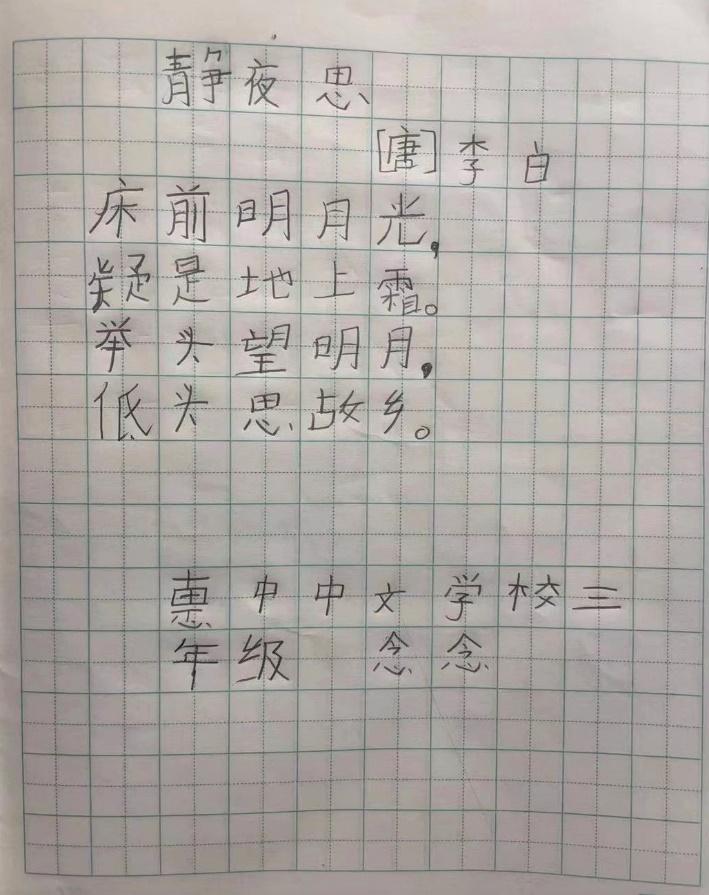 静夜思
[唐]李白
床前明月光，
疑是地上霜。
举头望明月，
低头思故乡。
惠中中文学校三
年级 念念